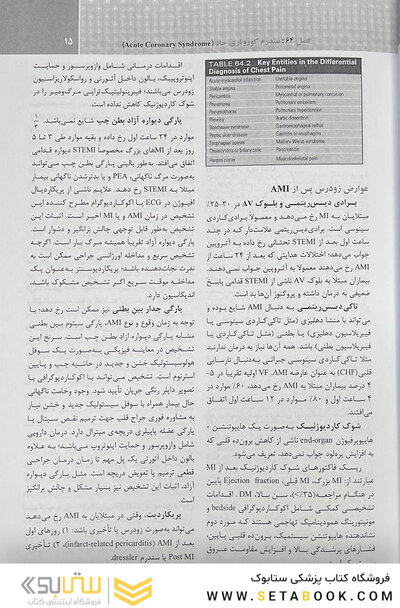 فصل ۶۴: سندرم کورونری حاد (Acute Coronary Syndrome)
۱۵
TABLE 64.2 Key Entities in the Differential
Diagnosis of Chest Pain
Acute myocardial infarction
Unstable angina
Stable angina
Prinzmetal angina
Pericarditis
Myocardial or pulmonary contusion
Pneumonia
Pulmonary embolism
Pneumothorax
Pulmonary hypertension
Pleurisy
Aortic dissection
Boerhaave syndrome
Gastroesophageal reflux
Peptic ulcer disease
Gastritis or esophagitis
Esophageal spasm
Mallory-Weiss syndrome
Cholecystitis or biliary colic
Pancreatitis
Herpes zoster
Musculoskeletal pain
عوارض زودرس پس از AMI
برادی دیس‌ریتمی و بلوک AV در ۳۰-۲۵٪
مبتلایان به MI رخ می‌دهد و معمولاً برادی‌کاردی
سینوسی است. برادی‌دیس‌ریتمی علامت‌دار که در چند
ساعت اول بعد از STEMI تحتانی رخ داده به آتروپین
جواب می‌دهد؛ اختلالات هدایتی که بعد از ۲۴ ساعت از
AMI رخ می‌دهند معمولا به آتروپین جواب نمی‌دهند.
بیماران مبتلا به بلوک AV ناشی از STEMI قدامی پاسخ
ضعیفی به درمان داشته و پروگنوز آن‌ها بد است.
تاکی‌دیس‌ریتمی به دنبال AMI شایع بوده و
می‌تواند با منشا دهلیزی (مثل تاکی‌کاردی سینوسی یا
فیبریلاسیون دهلیزی) یا بطنی (مثل تاکی‌کاردی یا
فیبریلاسیون بطنی) باشد. همه آن‌ها نیاز به درمان ندارند
مثلا تاکی‌کاردی سینوسی جبرانی به‌دنبال نارسایی
قلبی (CHF) به عنوان عارضه AMI. VF اولیه تقریبا در ۵-
۴ درصد بیماران مبتلا به AMI رخ می‌دهد. ۶۰٪ موارد در
۴ ساعت اول و ۸۰٪ موارد در ۱۲ ساعت اول اتفاق
می‌افتند.
شوک کاردیوژنیک به‌صورت یک هایپوتنشن +
هایپوپرفیوژن end-organ ناشی از کاهش برون‌ده قلبی که
به افزایش پره‌لود جواب نمی‌دهد، تعریف می‌شود.
ریسک فاکتورهای شوک کاردیوژنیک بعد از MI
عبارتند از: MI بزرگ، MI قبلی، Ejection fraction پایین
در هنگام مراجعه (۳۵٪>)، سن بالا، DM. اقدامات
تشخیصی کمکی شامل اکوکاردیوگرافی bedside و
مونیتورینگ همودینامیک تهاجمی هستند که مورد دوم
نشاندهنده هایپوتنشن سیستمیک، برون‌ده قلبی پایین،
فشارهای پرشدگی بالا و افزایش مقاومت عروق
اقدامات درمانی شامل وازوپرسور و حمایت
اینوتروپیک، بالون داخل آئورتی و رواسکولاریزاسیون
زودرس می‌باشند؛ فیبرینولیتیک‌تراپی مرگ‌ومیر را در
شوک کاردیوژنیک کاهش نداده است.
پارگی دیواره آزاد بطن چپ شایع نمی‌باشد. ۱/۳
موارد در ۲۴ ساعت اول رخ داده و بقیه موارد طی ۳ تا ۵
روز بعد از MIهای بزرگ مخصوصاً STEMI دیواره قدامی
اتفاق می‌افتد. به‌طور بالینی پارگی بطن چپ می‌تواند
به‌صورت مرگ ناگهانی، PEA و یا بدتر‌شدن ناگهانی بیمار
مبتلا به STEMI رخ دهد. علایم ناشی از پریکاردیال
افیوژن در ECG یا اکوکاردیوگرام مطرح کننده این
تشخیص در زمان AMI و یا MI اخیر است. اثبات این
تشخیص به‌طور قابل توجهی چالش برانگیز و دشوار است.
پارگی دیواره آزاد تقریبا همیشه مرگ بار است. اگرچه
تشخیص سریع و مداخله اورژانسی جراحی ممکن است به
ندرت نجات‌دهنده باشد؛ پریکاردیوسنتز به‌عنوان یک
مداخله موقت سریع اگر تشخیص مشکوک باشد،
اندیکاسیون دارد.
پارگی جدار بین بطنی نیز ممکن است رخ دهد؛ با
توجه به زمان وقوع و نوع AMI، پارگی سپتوم بین بطنی
مشابه پارگی دیواره آزاد بطن چپ است. سرنخ این
تشخیص در معاینه فیزیکی به‌صورت یک سوفل
هولوسیستولیک خشن و جدید در حاشیه چپ و پایین
استرنوم است. تشخیص می‌تواند با اکوکاردیوگرافی یا
تصویر داپلر رنگی جریان تأیید شود. وجود وخامت ناگهانی
حال بیمار همراه با سوفل سیستولیک جدید و خشن نیاز
به مشاوره فوری جراح قلب جهت ترمیم نقص سپتال یا
پارگی عضله پاپیلری دریچه‌ی میترال دارد. درمان دارویی
شامل وازوپرسور و حمایت اینوتروپ می‌باشد؛ به علاوه
بالون داخل آئورتی یک پل مهم تا زمان درمان جراحی
قطعی ترمیم یا تعویض دریچه است. مثل پارگی دیواره
آزاد، اثبات این تشخیص نیز بسیار مشکل و چالش برانگیز
است.
پریکاردیت، وقتی در مبتلایان به AMI رخ می‌دهد
می‌تواند به‌صورت زودرس یا تأخیری باشد: ۱) روزهای اول
AMI (infarct-related pericarditis)، ۲) تأخیری
Post MI یا سندرم dressler.
فروشگاه کتاب پزشکی ستابوک
WWW.SETABOOK.COM
ستابوک
فروشگاه اینترنتی کتاب